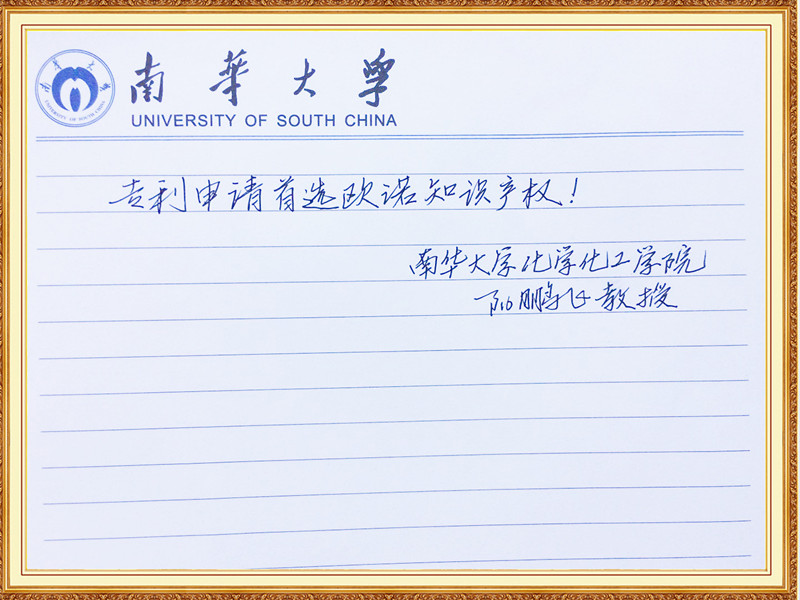 南華大學
UNIVERSITY OF SOUTH CHINA
南华大学
UNIVERSITY OF SOUTH CHINA
专利申请首选欧诺知识产权！
南华大学化学化工学院
鹏飞教授